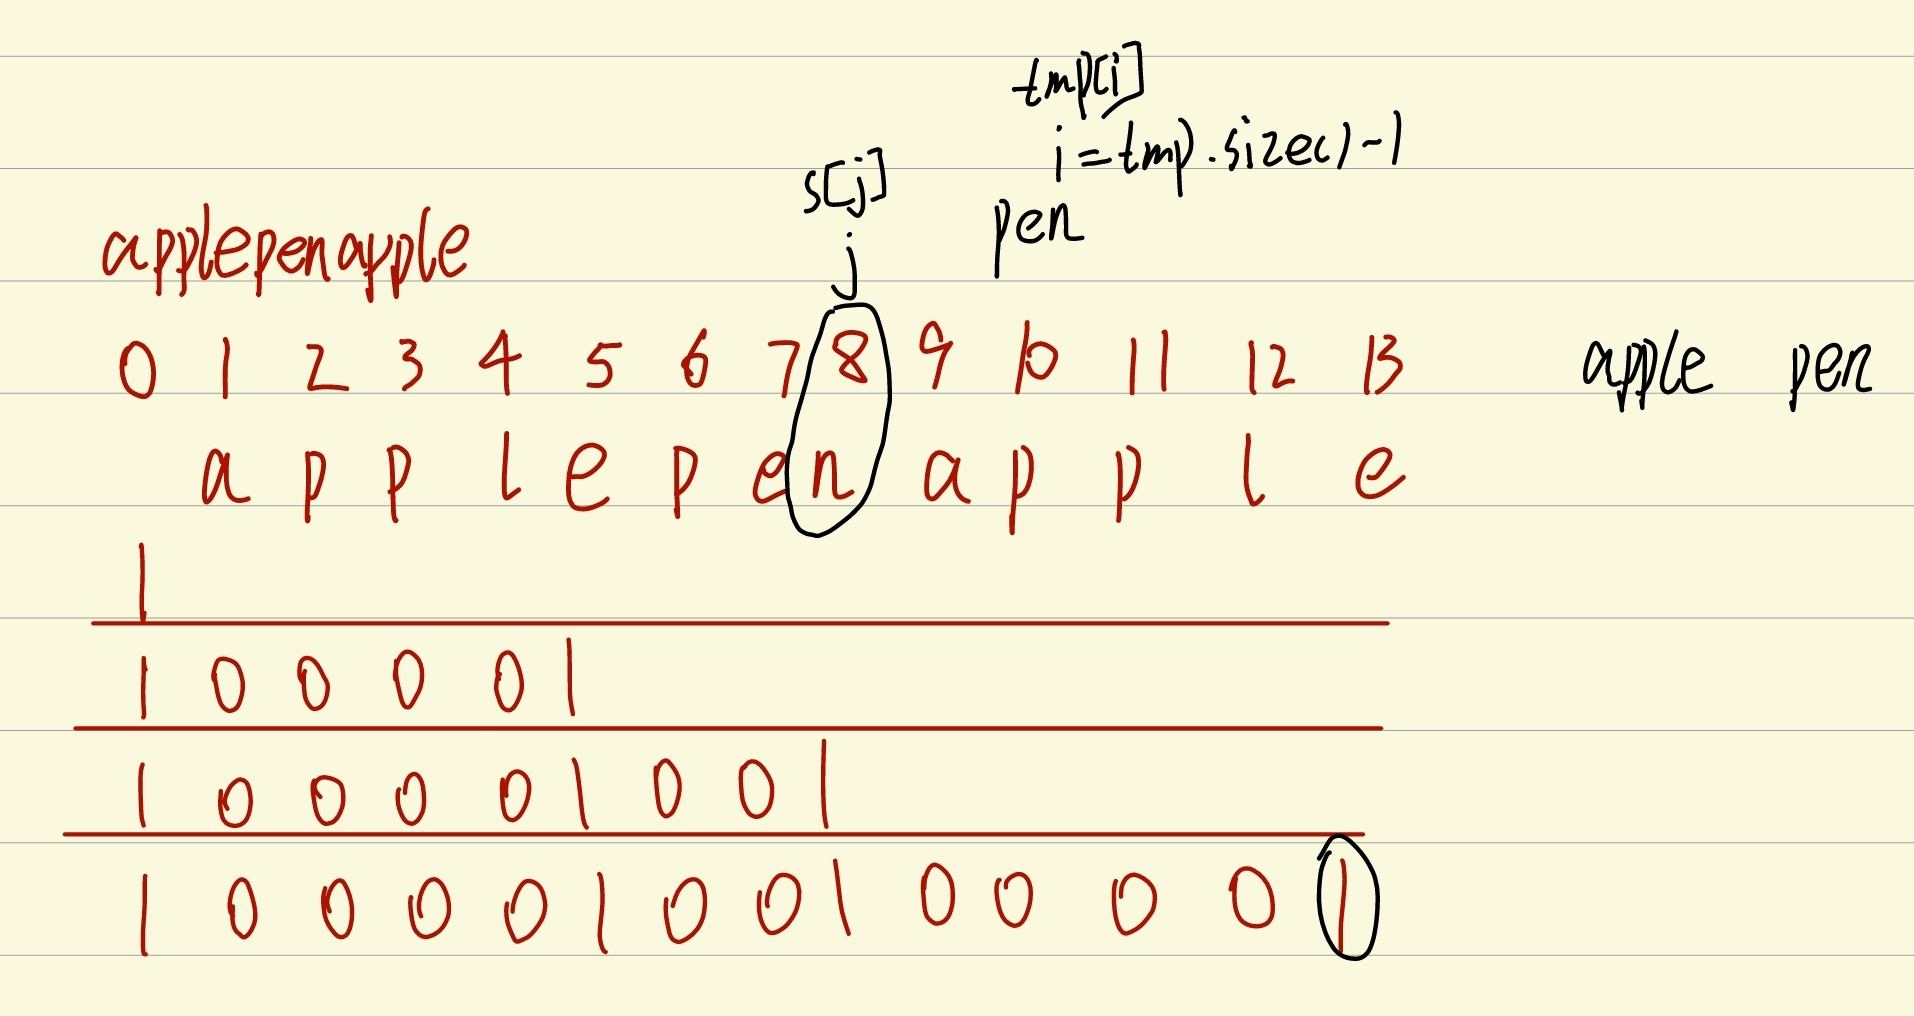 tmp[i]
i=tmp.size()-1
s[j]
pen
applepenapple
j
0 1 2 3 4 5 6 7 8 9 10 11 12 13
apple pen
a p p l e p e n a p p l e
1
1 0 0 0 0 1
1 0 0 0 0 1 0 0 1
1 0 0 0 0 1 0 0 1 0 0 0 0 1